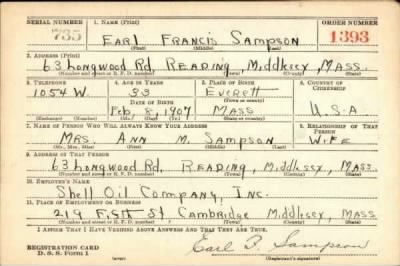 SERIAL NUMBER 1. NAME (Print) ORDER NUMBER
735 EARL FRANCIS SAMPSON 1393
(First) (Middle) (Last)
2. ADDRESS (Print)
63 Longwood Rd, READING, Middlesex, MASS.
(Number and street or R. F. D. number) (Town) (County) (State)
3. TELEPHONE 4. AGE IN YEARS 5. PLACE OF BIRTH 6. COUNTRY OF CITIZENSHIP
1054 W. 33 Everett
DATE OF BIRTH (Town or county)
Feb 8, 1907 MASS U.S.A
(Exchange) (Number) (Mo.) (Day) (Yr.) (State or country)
7. NAME OF PERSON WHO WILL ALWAYS KNOW YOUR ADDRESS 8. RELATIONSHIP OF THAT PERSON
MRS. ANN M. SAMPSON WIFE
(Mr., Mrs., Miss) (First) (Middle) (Last)
9. ADDRESS OF THAT PERSON
63 Longwood Rd, READING, Middlesex, MASS.
(Number and street or R. F. D. number) (Town) (County) (State)
10. EMPLOYER'S NAME
Shell Oil Company, Inc.
11. PLACE OF EMPLOYMENT OR BUSINESS
219 St Cambridge Middlesex, MASS
(Number and street or R. F. D. number) (Town) (County) (State)
I AFFIRM THAT I HAVE VERIFIED ABOVE ANSWERS AND THAT THEY ARE TRUE.
REGISTRATION CARD
D. S. S. Form 1 (over) Earl F. Sampson